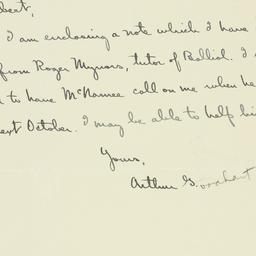 bert,
I am enclosing a note which I have
from Roger Mynors, tutor of Balliol. I
to have McNamee call on me when he
ext October. I may be able to help hi
Yours,
Arthur G.